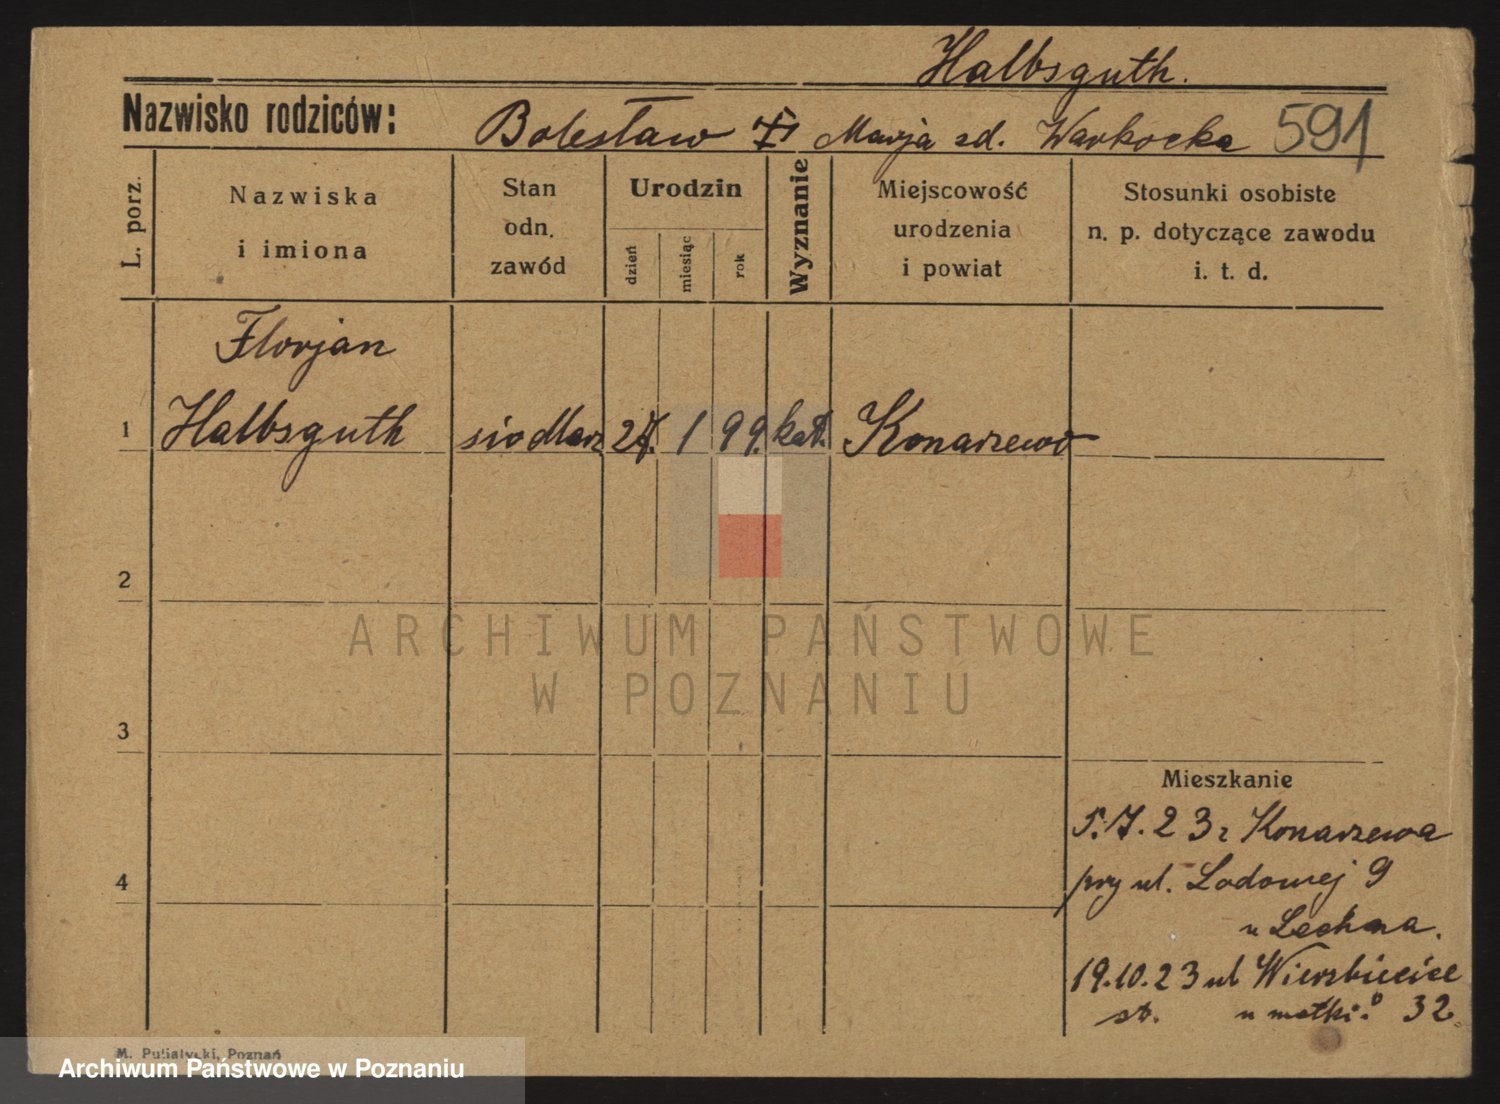 Halbsguth.
Nazwisko rodziców: Bolesław Marja zd. Warkocka 591
L. porz.
Nazwiska i imiona
Stan odn. zawód
Urodzin
dzień
miesiąc
rok
Wyznanie
Miejscowość urodzenia i powiat
Stosunki osobiste n. p. dotyczące zawodu i. t. d.
Florjan
1 Halbsguth siodlarz 27. 1 99. kat. Konarzewo
2
ARCHIWUM PAŃSTWOWE
W POZNANIU
3
Mieszkanie
5.7.23 z Konarzewa
4
przy ul. 9
u Lechna.
19.10.23 ul Wierzbięcice
u matki. 32
M. Putiatycki, Poznań
Archiwum Państwowe w Poznaniu